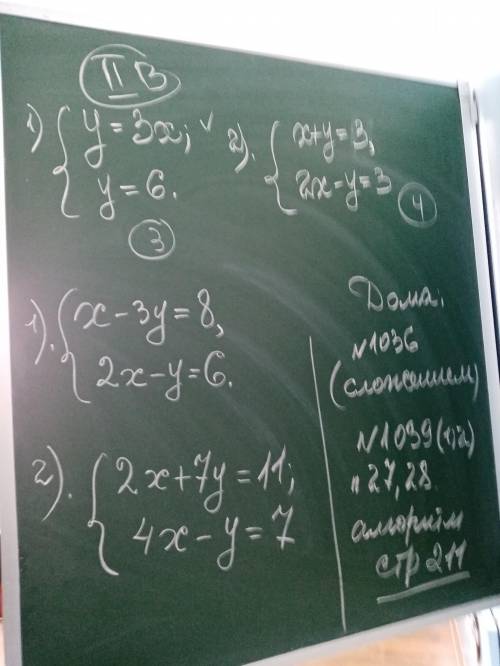 II В
1) { y = 3x;
y = 6.
3
2). { x+y = 3,
2x-y = 3
4
1). { x - 3y = 8,
2x - y = 6.
2). { 2x + 7y = 11;
4x - y = 7
Дома:
№1036
(сложением)
№1039 (1;2)
п 27, 28.
алгоритм
стр 211